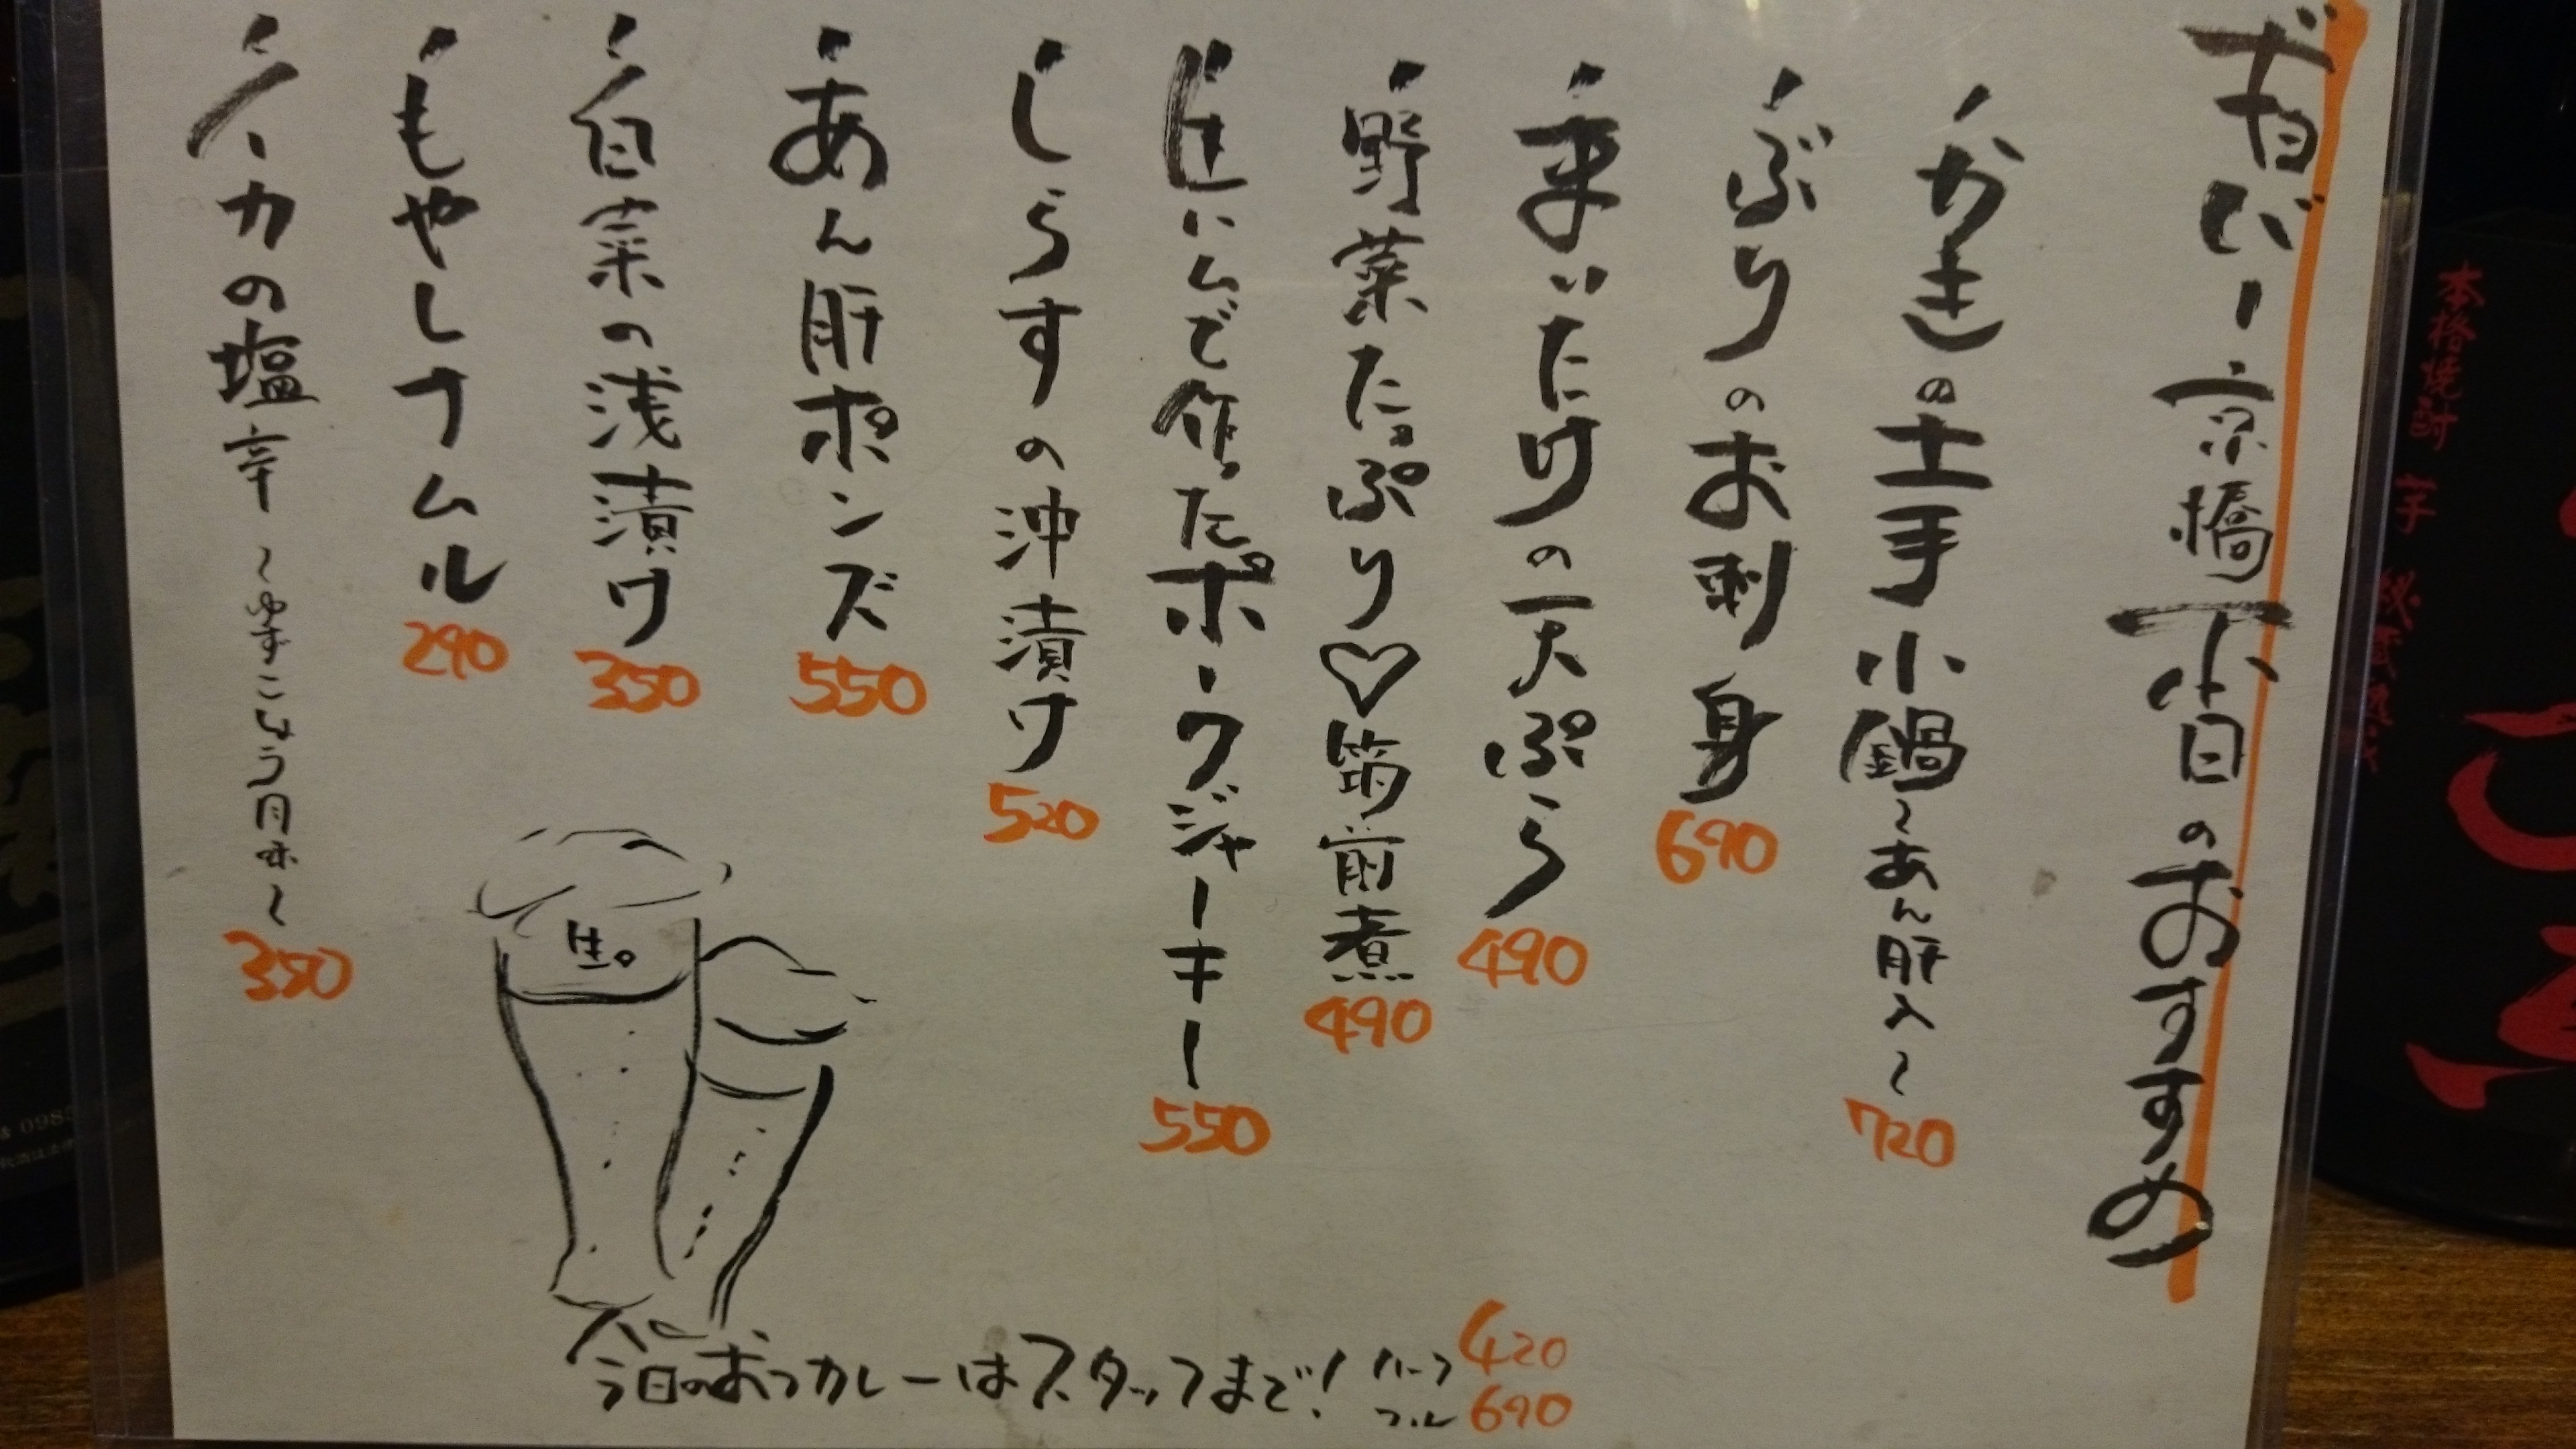 ギョバー京橋 本日のおすすめ
・かきの土手小鍋〜あん肝入〜 720
・ぶりのお刺身 690
・まいたけの天ぷら 490
・野菜たっぷり♡筑前煮 490
・生ハムで作ったポークジャーキー 550
・しらすの沖漬け 520
・あん肝ポンズ 550
・白菜の浅漬け 350
・もやしナムル 290
・イカの塩辛 〜ゆずこしょう風味〜 350
生。
今日のおつカレーはスタッフまで! ハーフ 420
フル 690
本格焼酎 芋